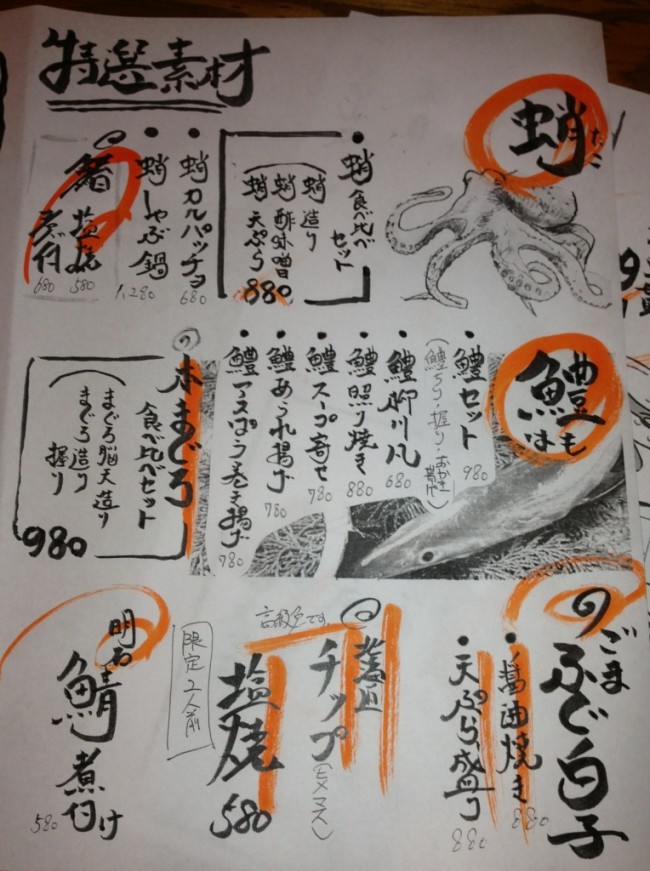 特選素材
蛸
たこ
・蛸食べ比べ
セット
(蛸造り
蛸酢味噌
蛸天ぷら
880
・蛸カルパッチョ
680
・蛸しゃぶ鍋
1,280
塩焼
580
煮付
680
鱧
はも
・鱧セット
980
・鱧柳川風
680
・鱧照り焼き
880
・鱧スープ寄せ
780
・鱧あられ揚げ
780
・鱧アスパラ巻き揚げ
780
本まぐろ
食べ比べセット
(まぐろ脳天造り
まぐろ造り
握り
980
ごまふぐ白子
・醤油焼き
880
・天ぷら盛り
880
チップ
(ヒメマス)
高級魚です。
塩焼
580
限定2人前
明石
鯖煮付け
580